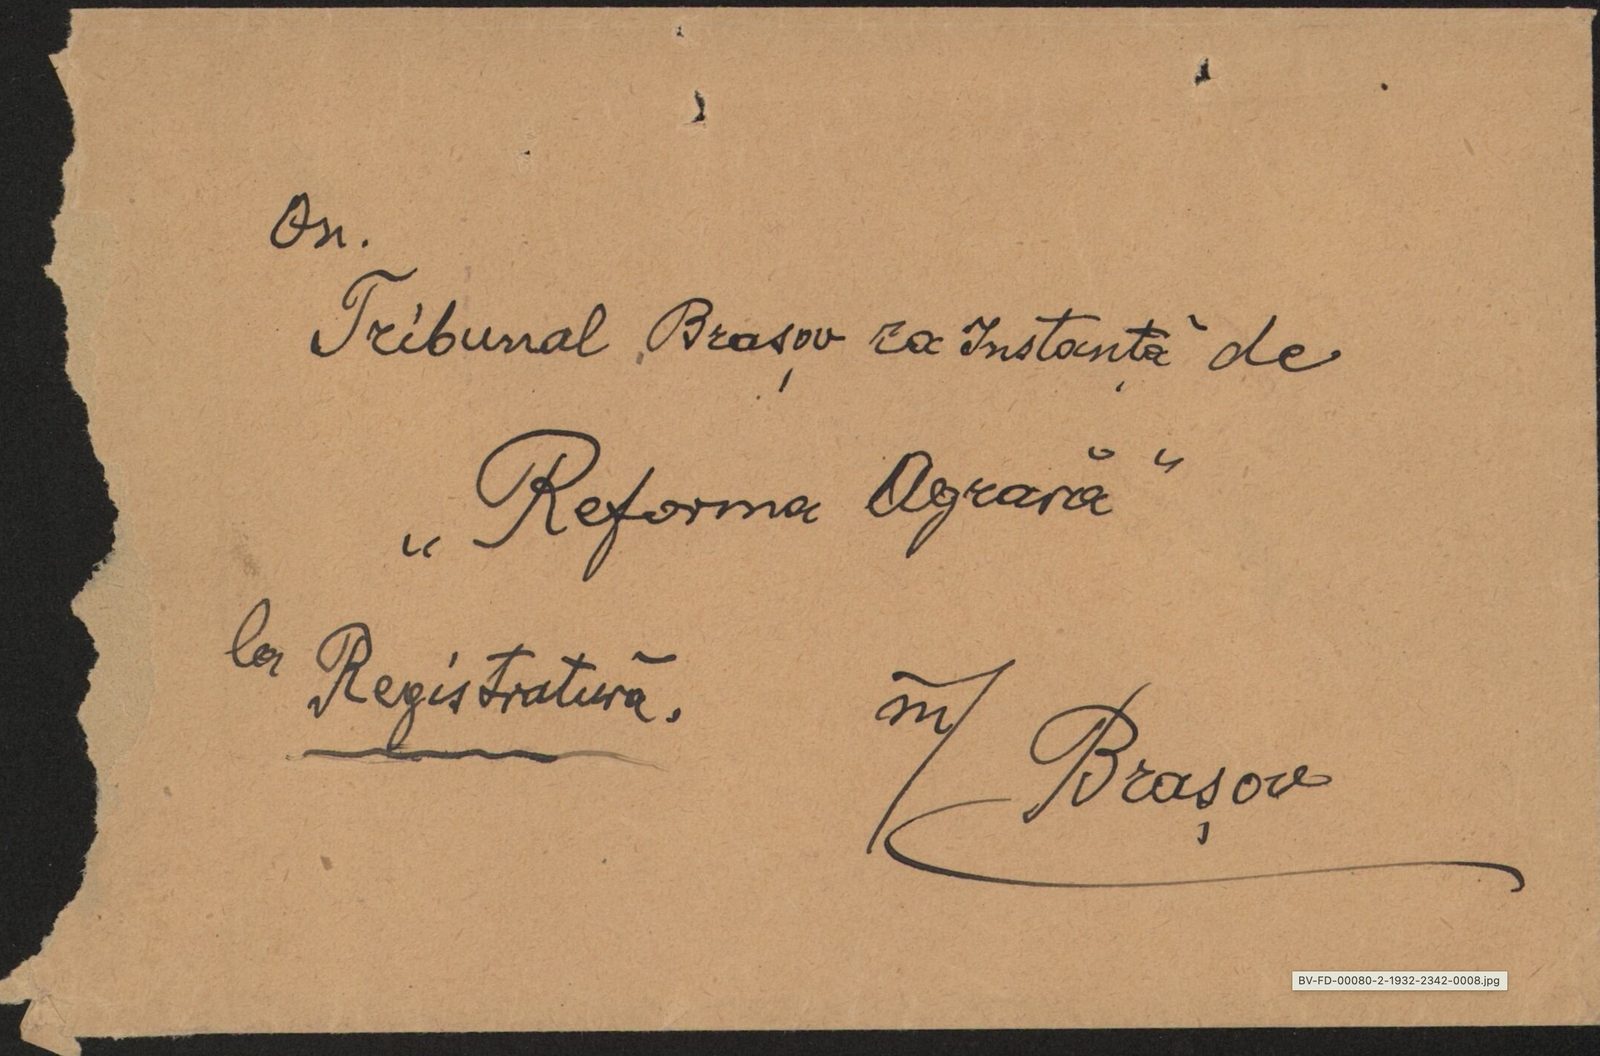 On.
Tribunal Brașov ca Instanță de
„Reforma Agrară"
la Registratură.
m/ Brașov
BV-FD-00080-2-1932-2342-0008.jpg